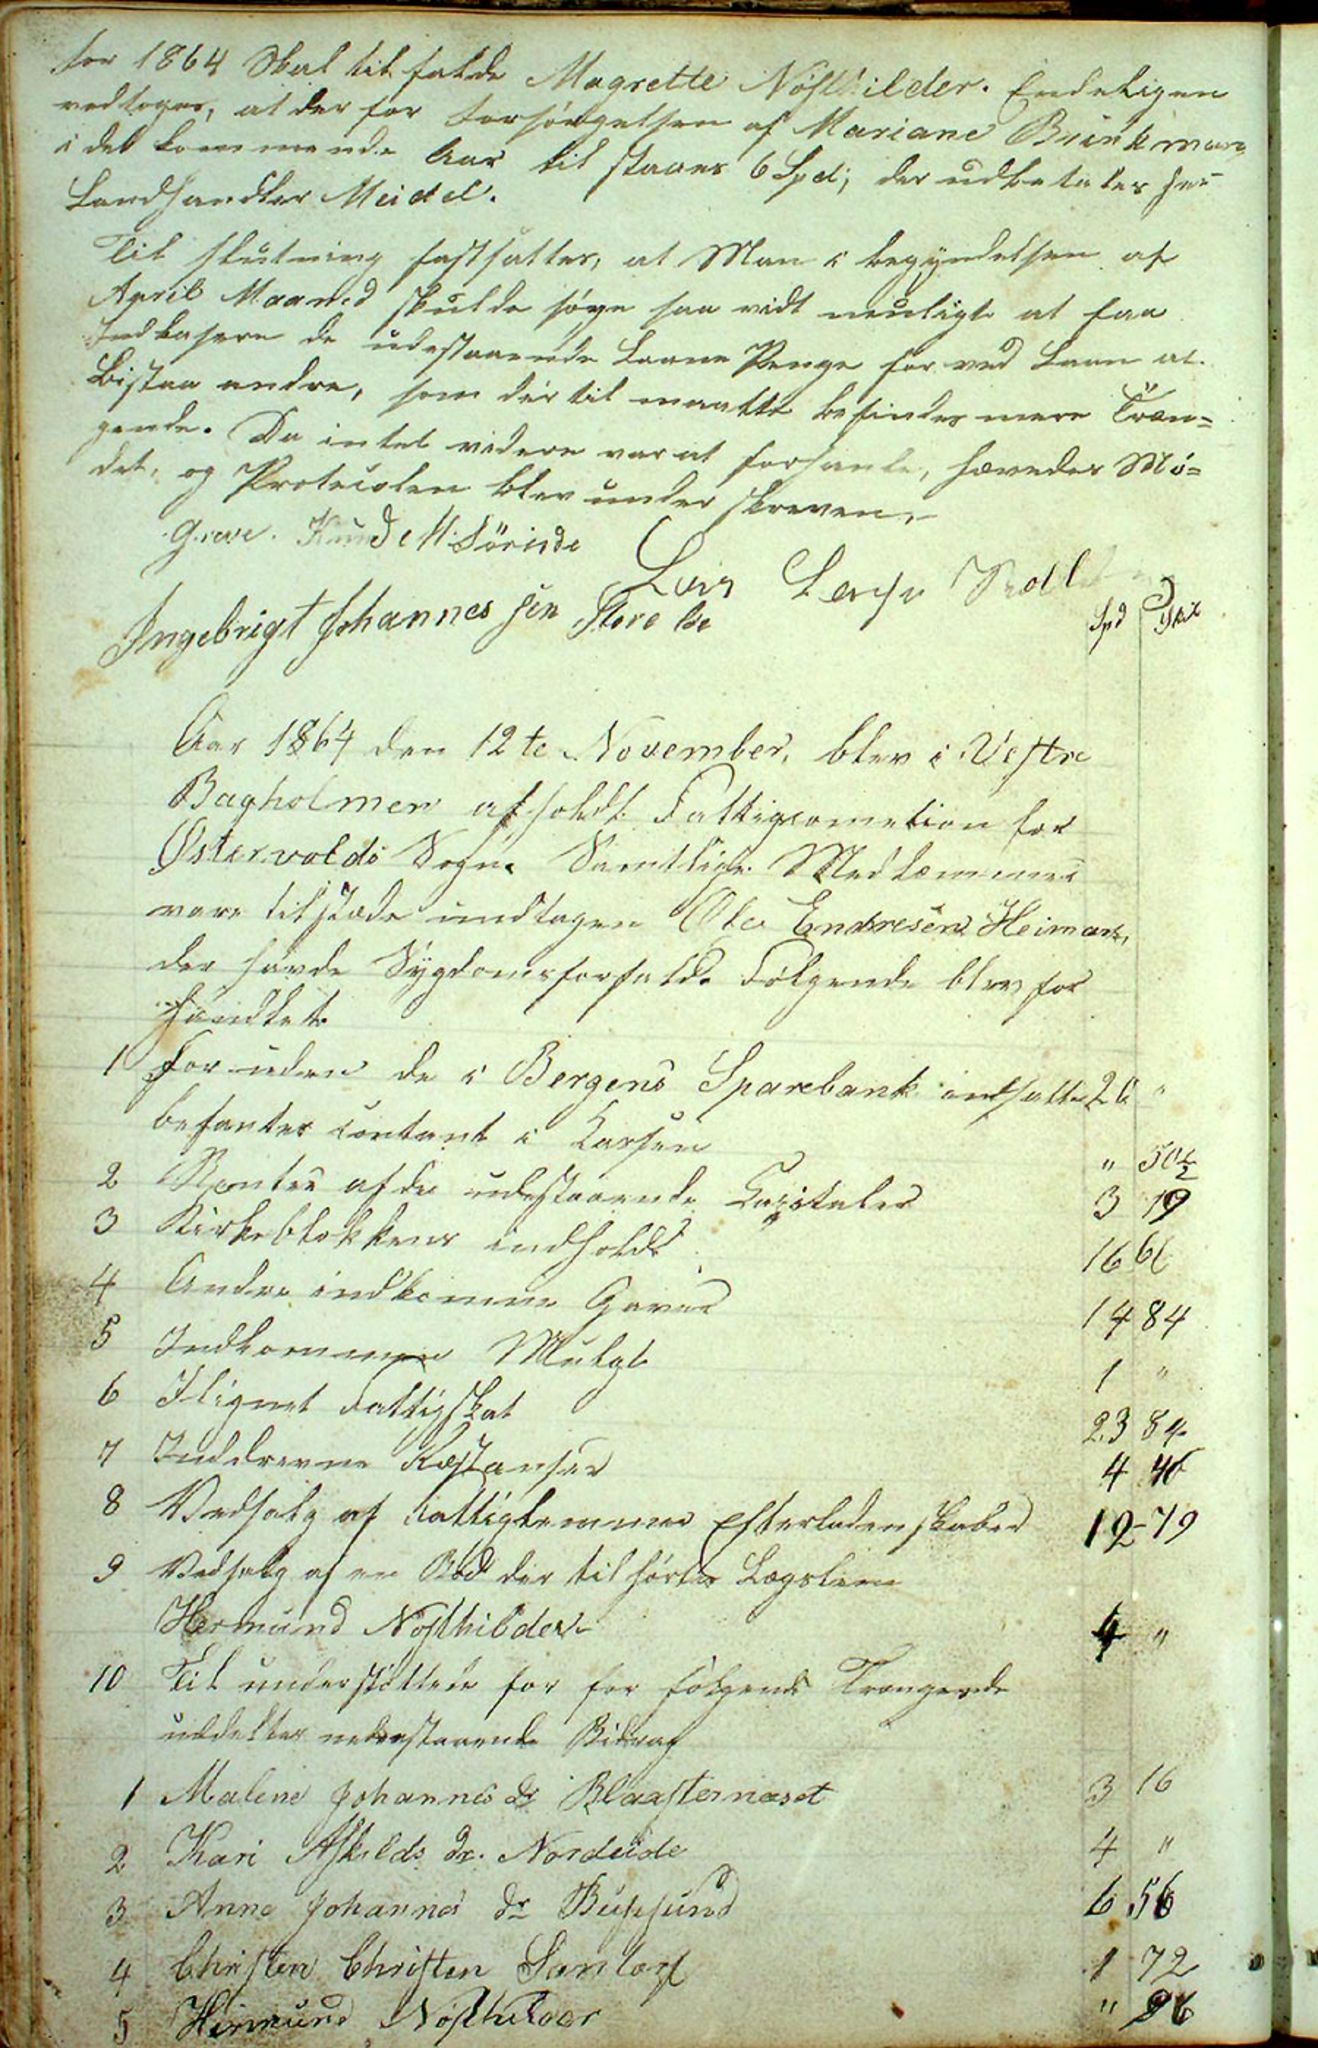 for 1864 Skal tilfalde Magrette Nösthilder. Endeligen
vedtoges, at der for Forsørgelsen af Mariane Brinkmann
i det kommende Aar tilstaaes 6 Spd; der udbetales Hr
Landhandler Meidel.
Til Slutning fastsattes, at Man i begyndelsen af
April Maaned skulde søge saa vidt muligt at faa
Indkasere de udestaaende Laane Penge for ved Laan at
bistaa andre, som dertil maatte befindes mere Træn=
gende. Da intet videre var at forhandle, hævedes Mö=
det, og Protocolen blev underskreven.
Greve. Knud M. Söreide
Ingebrigt Johannes sen Store bø
Spd Skil
Aar 1864 den 12te November, blev i Vestre
Bagholmen afholdt Fattigcometion for
Østervolds Sogn. Samtlige Medlemmer
vare tilstæde undtagen Ole Endresen Heimark,
der havde Sygdomsforfald. Følgende blev for
handlet.
1 Foruden de i Bergens Sparebank indsatte 26 "
befantes contant i Kassen " 50½
2 Renter af de udestaaende Capitaler 3 19
3 Kirkeblokkens indhold 16 61
4 Andre indkomne Gaver 14 84
5 Indkommen Mulgt 1 "
6 Ilignet Fattigskat 23 84
7 Inddrevne Restanser 4 46
8 Vedsalg af Fattiglemmers Efterladenskaber 12-79
9 Vedsalg af en Bod der tilhørte Lægslem
Hermund Nösthilder 4 "
10 Til understöttelse for for følgende Trængende
uddeltes nedenstaaende Bidrag
1 Malene Johannes dr Blaasternæset 3 16
2 Kari Askilds dr. Nordeide 4 "
3 Anna Johannes dr Busesund 6 56
4 Christen Christen Santorf 1 72
5 Hermund Nösthilder " 96